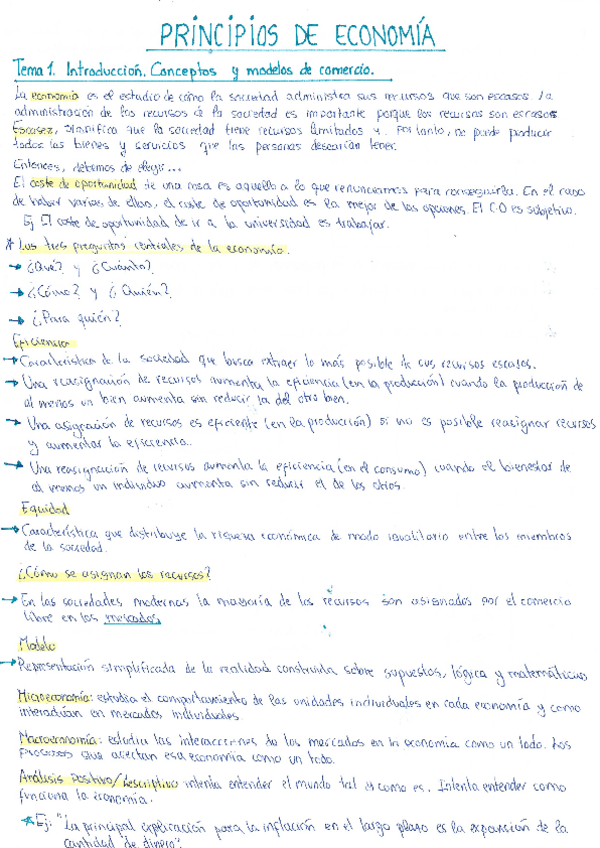 PRINCIPIOS DE ECONOMÍA
Tema 1. Introducción. Conceptos y modelos de comercio.
La economía es el estudio de cómo la sociedad administra sus recursos que son escasos. La
administración de los recursos de la sociedad es importante porque los recursos son escasos
Escasez, significa que la sociedad tiene recursos limitados y, por tanto, no puede producir
todos los bienes y servicios que las personas desearían tener.
Entonces, debemos de elegir...
El coste de oportunidad de una cosa es aquello a lo que renunciamos para conseguirla. En el caso
de haber varias de ellas, el coste de oportunidad es la mejor de las opciones. El C.O es subjetivo.
Ej El coste de oportunidad de ir a la universidad es trabajar.
* Las tres preguntas centrales de la economía.
→ ¿Qué? y ¿Cuánto?
→ ¿Cómo? y ¿Quién?
→ ¿Para quién?
Eficiencia
→ Característica de la sociedad que busca extraer lo más posible de sus recursos escasos.
→ Una reasignación de recursos aumenta la eficiencia (en la producción) cuando la producción de
al menos un bien aumenta sin reducir la del otro bien.
→ Una asignación de recursos es eficiente (en la producción) si no es posible reasignar recursos
y aumentar la eficiencia.
→ Una reasignación de recursos aumenta la eficiencia (en el consumo) cuando el bienestar de
al menos un individuo aumenta sin reducir el de los otros.
Equidad
→ Característica que distribuye la riqueza económica de modo igualitario entre los miembros
de la sociedad.
¿Cómo se asignan los recursos?
→ En las sociedades modernas la mayoría de los recursos son asignados por el comercio
libre en los mercados
Modelo
→ Representación simplificada de la realidad construida sobre supuestos, lógica y matemáticas
Microeconomía: estudia el comportamiento de las unidades individuales en cada economía y como
interactúan en mercados individuales.
Macroeconomía: estudia las interacciones de los mercados en la economía como un todo. Los
procesos que afectan esa economía como un todo.
Análisis positivo/descriptivo intenta entender el mundo tal y como es. Intenta entender como
funciona la economía.
* Ej: "La principal explicación para la inflación en el largo plazo es la expansión de la
cantidad de dinero".